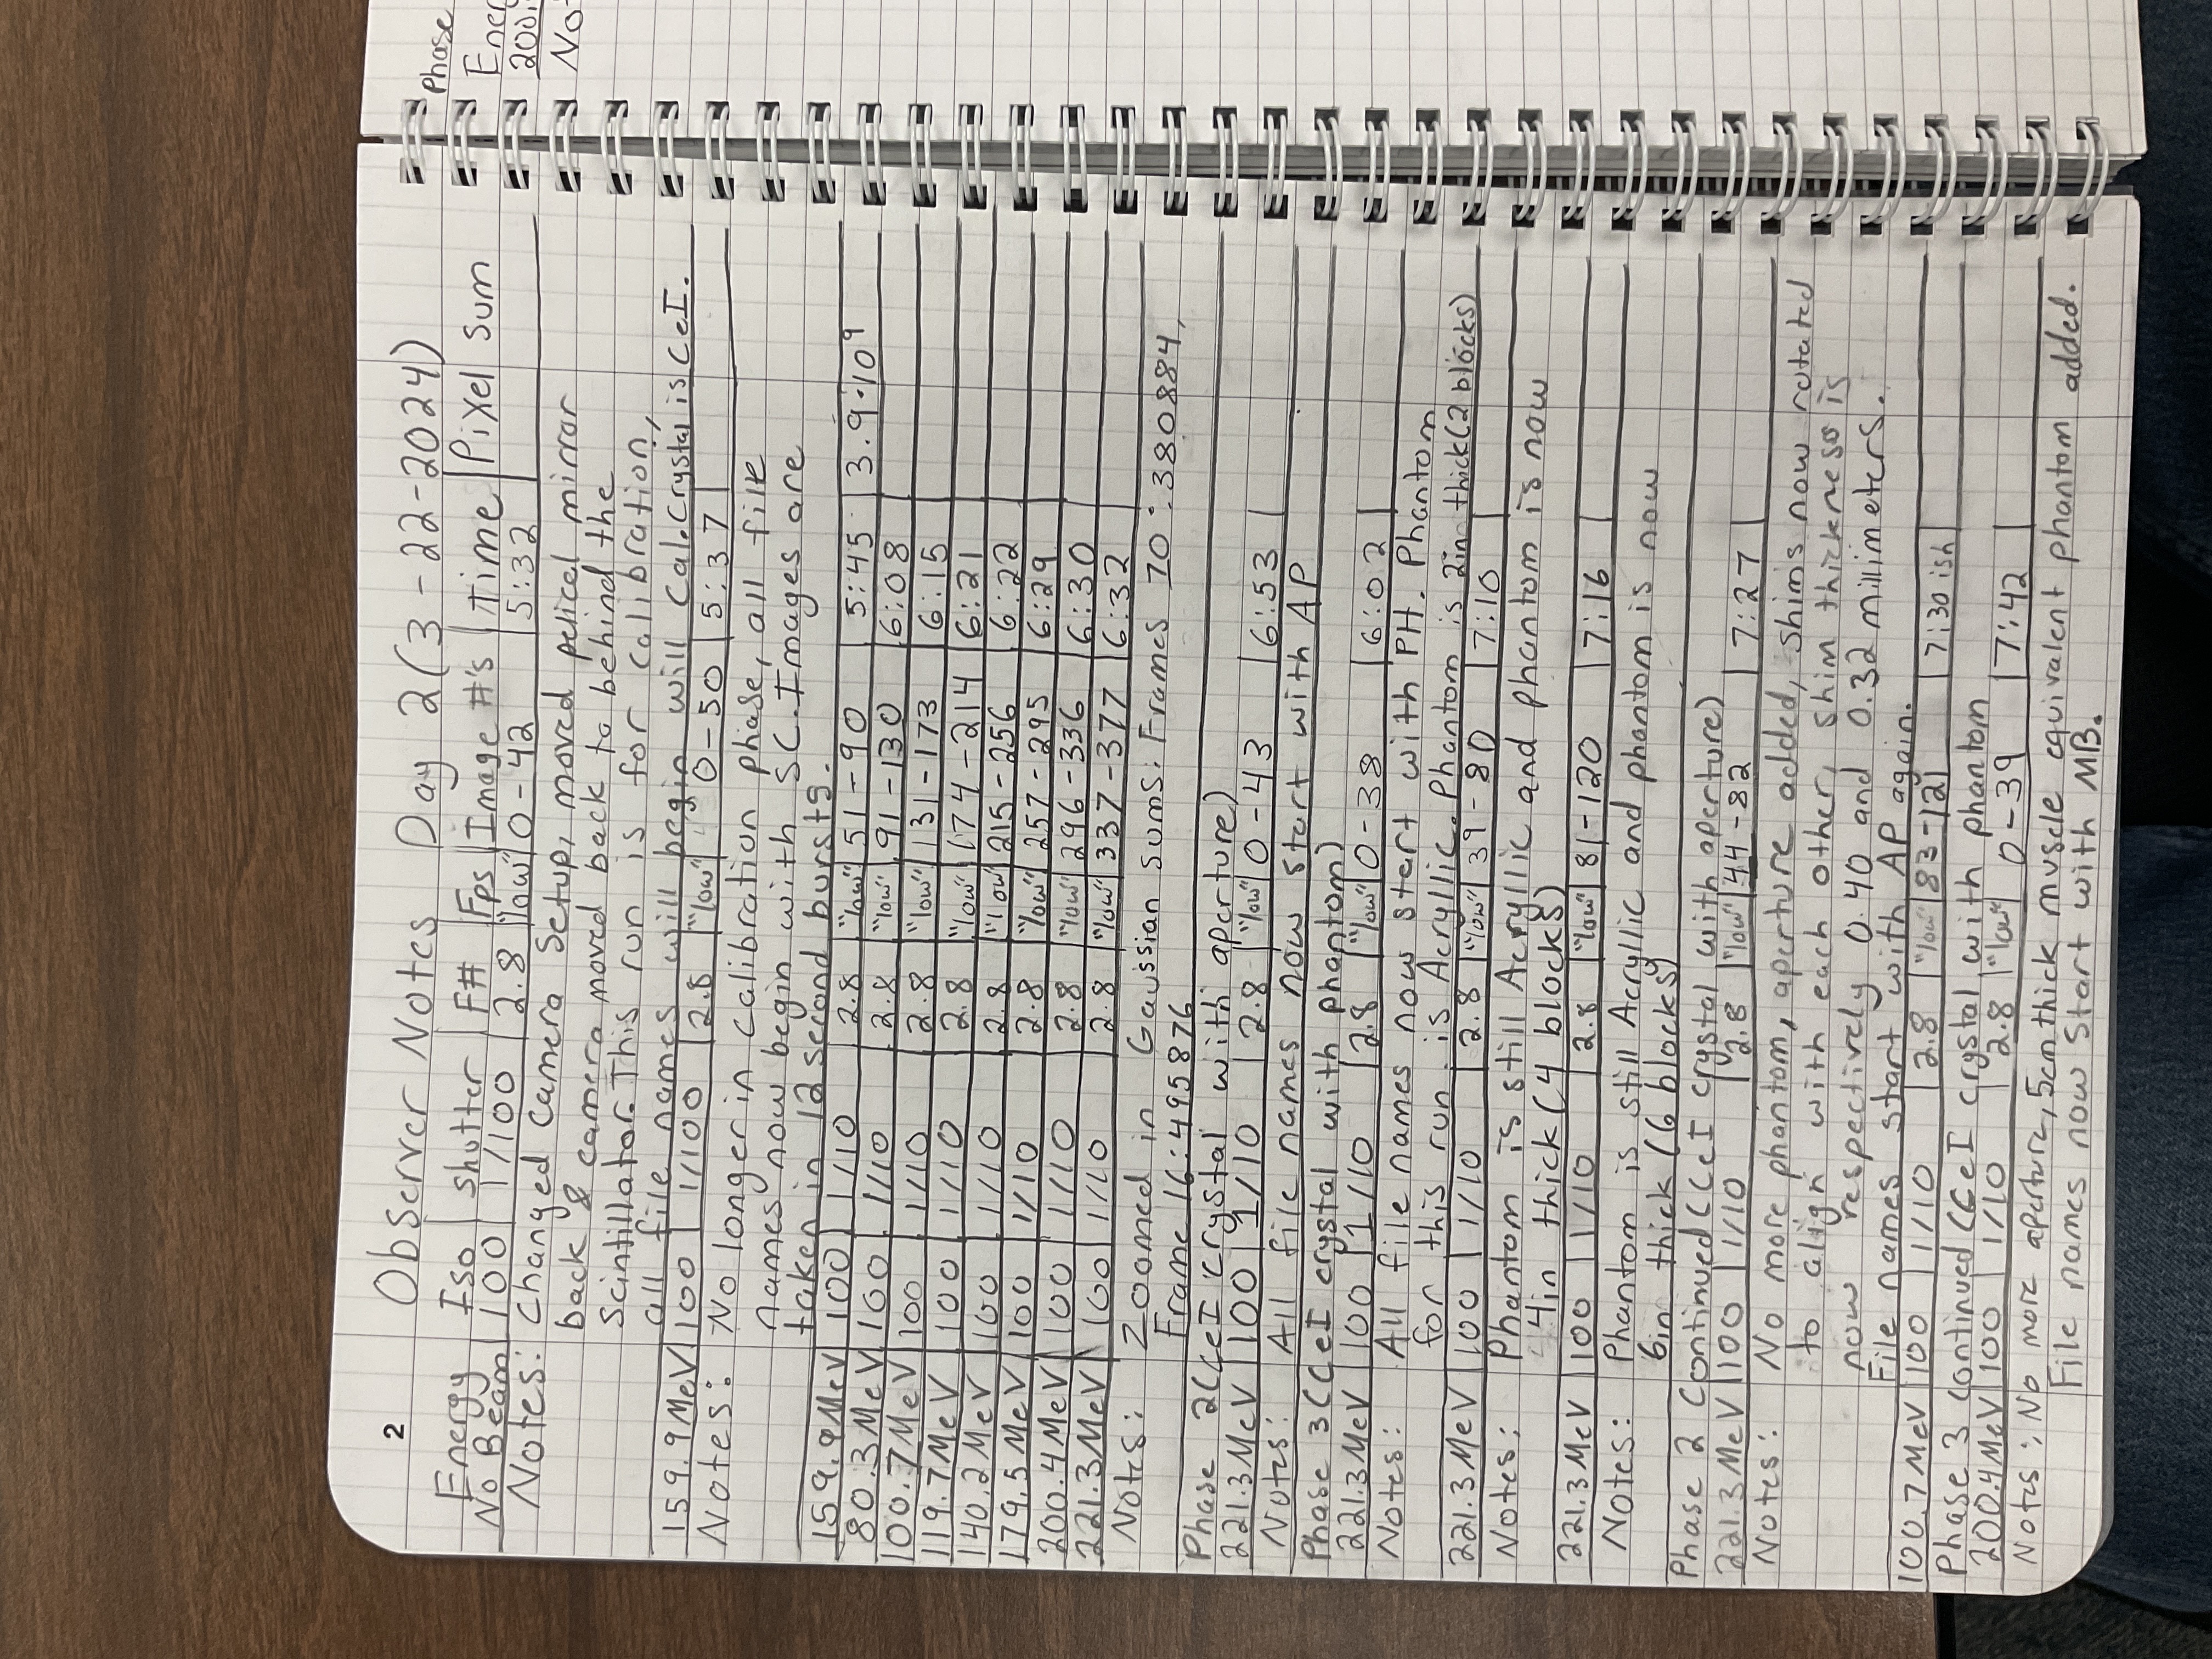 2 Observer Notes Day 2 (3-22-2024)
Energy Iso shutter F# Fps Image #'s Time Pixel sum
No Beam 100 1/100 2.8 "low" 0-42 5:32
Notes: Changed camera setup, moved pelical mirror
back & camera moved back to behind the
scintillator. This run is for calibration,
all file names will begin will Cal. Crystal is CeI.
159.9 MeV 100 1/100 2.8 "low" 0-50 5:37
Notes: No longer in calibration phase, all file
names now begin with SC. Images are
taken in 12 second bursts.
159.9 MeV 100 1/10 2.8 "low" 51-90 5:45 3.9·10⁹
80.3 MeV 100 1/10 2.8 "low" 91-130 6:08
100.7 MeV 100 1/10 2.8 "low" 131-173 6:15
119.7 MeV 100 1/10 2.8 "low" 174-214 6:21
140.2 MeV 100 1/10 2.8 "low" 215-256 6:22
179.5 MeV 100 1/10 2.8 "low" 257-295 6:29
200.4 MeV 100 1/10 2.8 "low" 296-336 6:30
221.3 MeV 100 1/10 2.8 "low" 337-377 6:32
Notes: Zoomed in Gaussian sums: Frames 10:380884,
Frame 16:495876
Phase 2 (CeI crystal with aperture)
221.3 MeV 100 1/10 2.8 "low" 0-43 6:53
Notes: All file names now start with AP
Phase 3 (CeI crystal with phantom)
221.3 MeV 100 1/10 2.8 "low" 0-38 6:02
Notes: All file names now start with PH. Phantom
for this run is Acryllic. Phantom is 2in thick (2 blocks)
221.3 MeV 100 1/10 2.8 "low" 39-80 7:10
Notes: Phantom is still Acryllic and phantom is now
4in thick (4 blocks)
221.3 MeV 100 1/10 2.8 "low" 81-120 7:16
Notes: Phantom is still Acryllic and phantom is now
6in thick (6 blocks)
Phase 2 Continued (CeI crystal with aperture)
221.3 MeV 100 1/10 2.8 "low" 44-82 7:27
Notes: No more phantom, aperture added, shims now rotated
to align with each other, shim thickness is
now respectively 0.40 and 0.32 millimeters.
File names start with AP again.
100.7 MeV 100 1/10 2.8 "low" 83-121 7:30 ish
Phase 3 continued (CeI crystal with phantom
200.4 MeV 100 1/10 2.8 "low" 0-39 7:42
Notes: No more aperture, 5cm thick muscle equivalent phantom added.
File names now start with MB.
Phase